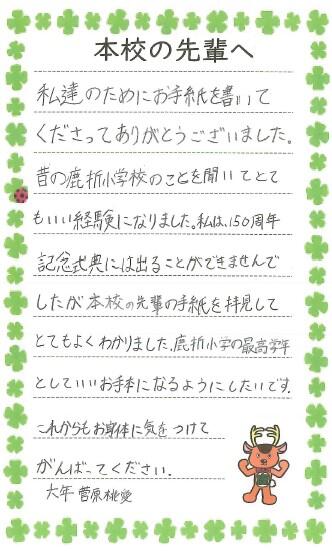 本校の先輩へ
私達のためにお手紙を書いて
くださってありがとうございました。
昔の鹿折小学校のことを聞いてとて
もいい経験になりました。私は、150周年
記念式典には出ることができませんで
したが本校の先輩の手紙を拝見して
とてもよくわかりました。鹿折小学の最高学年
としていいお手本になるようにしたいです。
これからもお身体に気をつけて
がんばってください。
六年 菅原桃愛